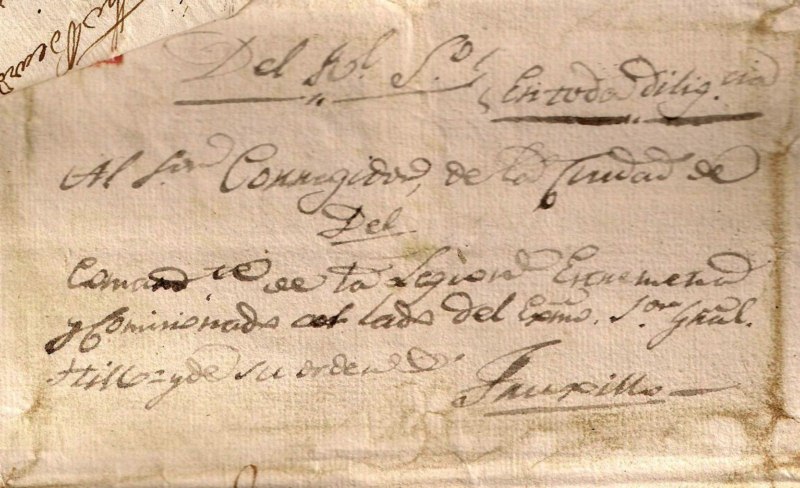 Del Rl. So.
En toda dilig.cia
Al Sor. Corregidor, de la Ciudad de
Del
Comandte de la Legion Estremeña
y Comisionado al lado del Exmo. Sor. Gral.
Hill y de su orden
Truxillo